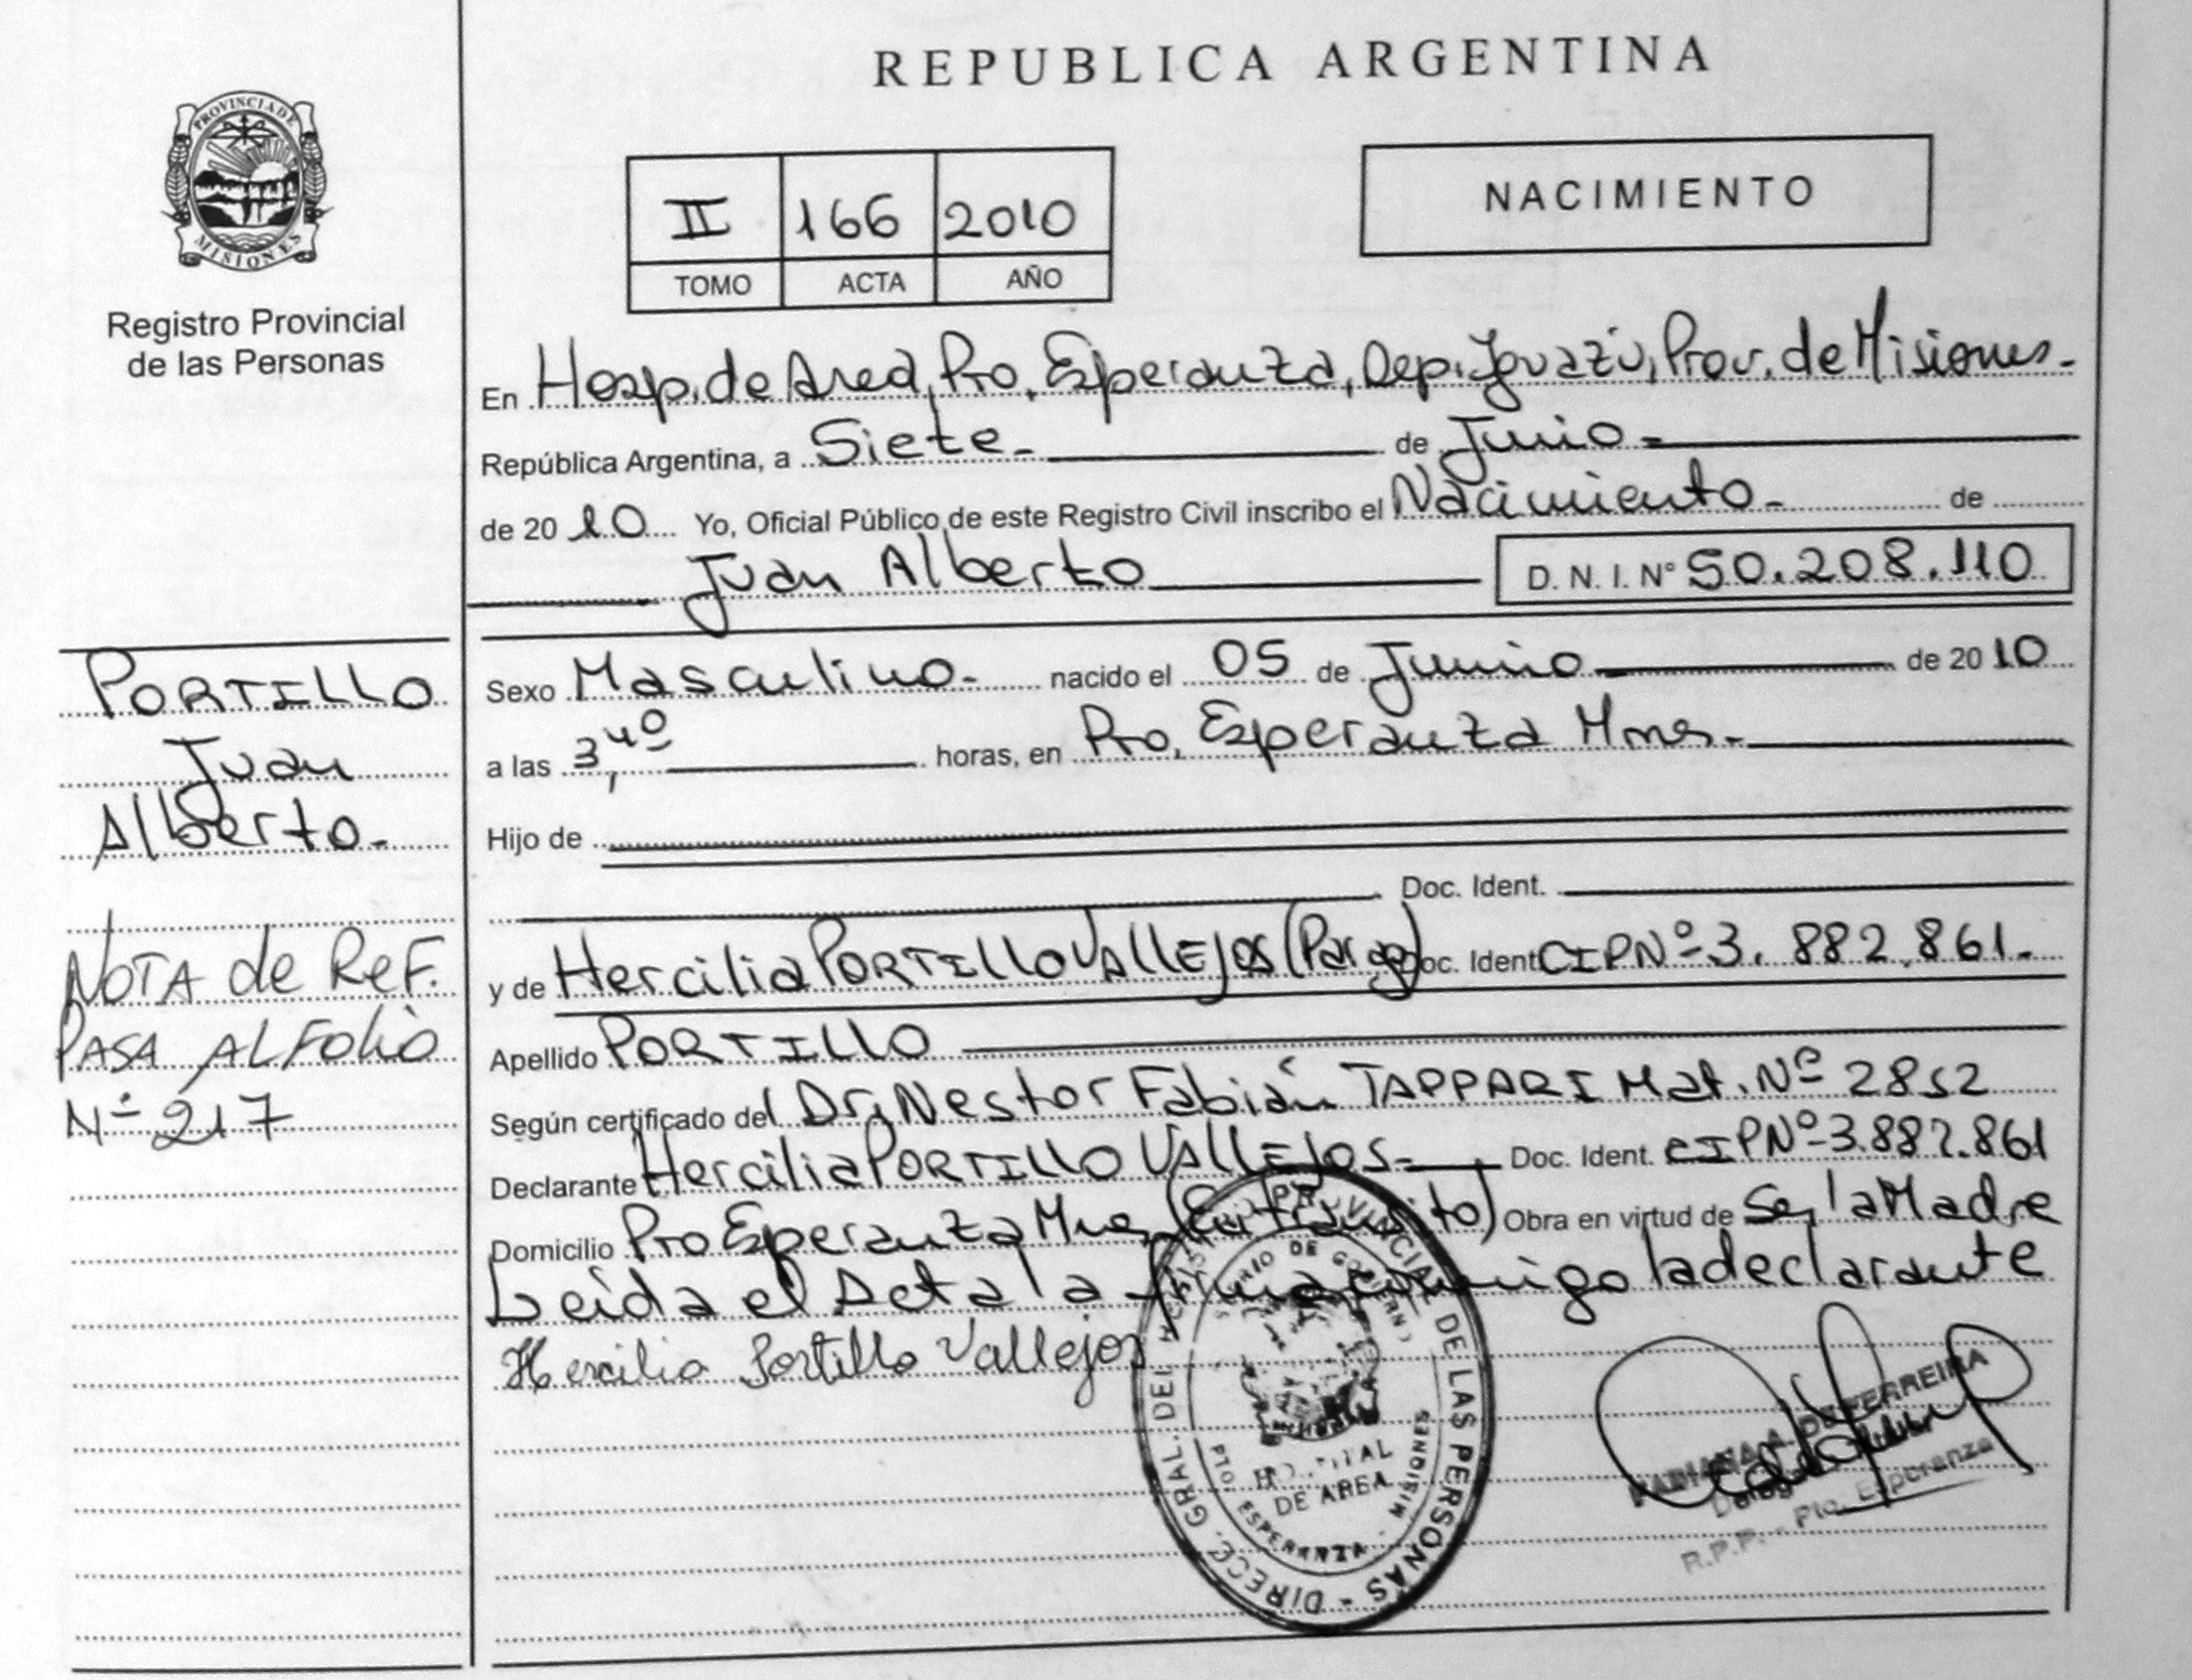 REPUBLICA ARGENTINA
PROVINCIA DE
MISIONES
Registro Provincial
de las Personas
II 166 2010
TOMO ACTA AÑO
NACIMIENTO
En Hosp. de Area, Pto. Esperanza, Dep. Iguazú, Prov. de Misiones.-
República Argentina, a Siete.- de Junio.-
de 20 10 Yo, Oficial Público de este Registro Civil inscribo el Nacimiento.- de
Juan Alberto D. N. I. N° 50.208.110
PORTILLO
Juan
Alberto.-
Sexo Masculino.- nacido el 05 de Junio de 20 10
a las 3,40 horas, en Pto. Esperanza Mnes.-
Hijo de
Doc. Ident.
y de Hercilia PORTILLO VALLEJOS (Parag) Doc. Ident CIPNº 3.882.861.-
Apellido PORTILLO
NOTA de REF.
PASA AL FOLIO
Nº 217
Según certificado del Dr. Nestor Fabián TAPPARI Mat. Nº 2852
Declarante Hercilia PORTILLO VALLEJOS.- Doc. Ident. CIPNº 3.882.861
Domicilio Pto Esperanza Mnes (En transito) Obra en virtud de Ser la Madre
Leida el Acta la firma conmigo la declarante
Hercilia Portillo Vallejos
DIRECC. GRAL. DEL PROVINCIAL DE LAS PERSONAS -
DE GOBIERNO
HOSPITAL
DE AREA
PTO. ESPERANZA - MISIONES
FABIANA A. DE FERREIRA
R.P.P. - Pto. Esperanza